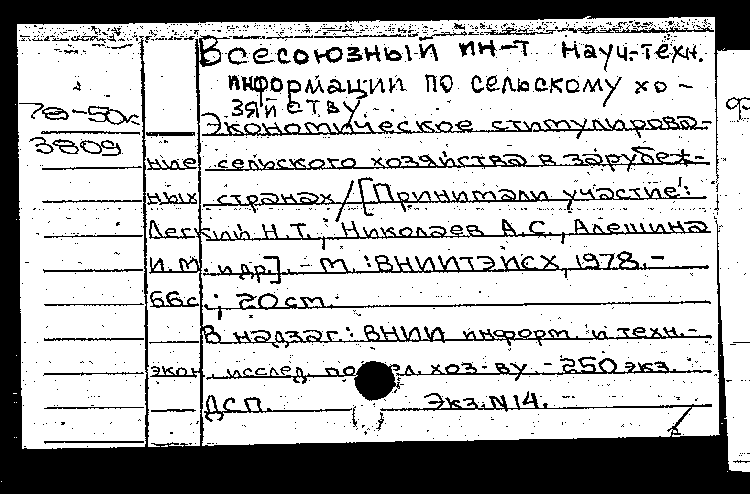 Всесоюзный ин-т науч.-техн.
информации по сельскому хо-
зяйству
78-50к
3809
Экономическое стимулирова-
ние сельского хозяйства в зарубеж-
ных странах/[Принимали участие:
Н.Т., Николаев А.С., Алешина
И.М. и др.]. - М.: ВНИИТЭИСХ, 1978. -
66с.; 20 см.
В надзаг.: ВНИИ информ. и техн.-
экон. исслед. по хоз-ву. - 250 экз.
ДСП. Экз. N 14.